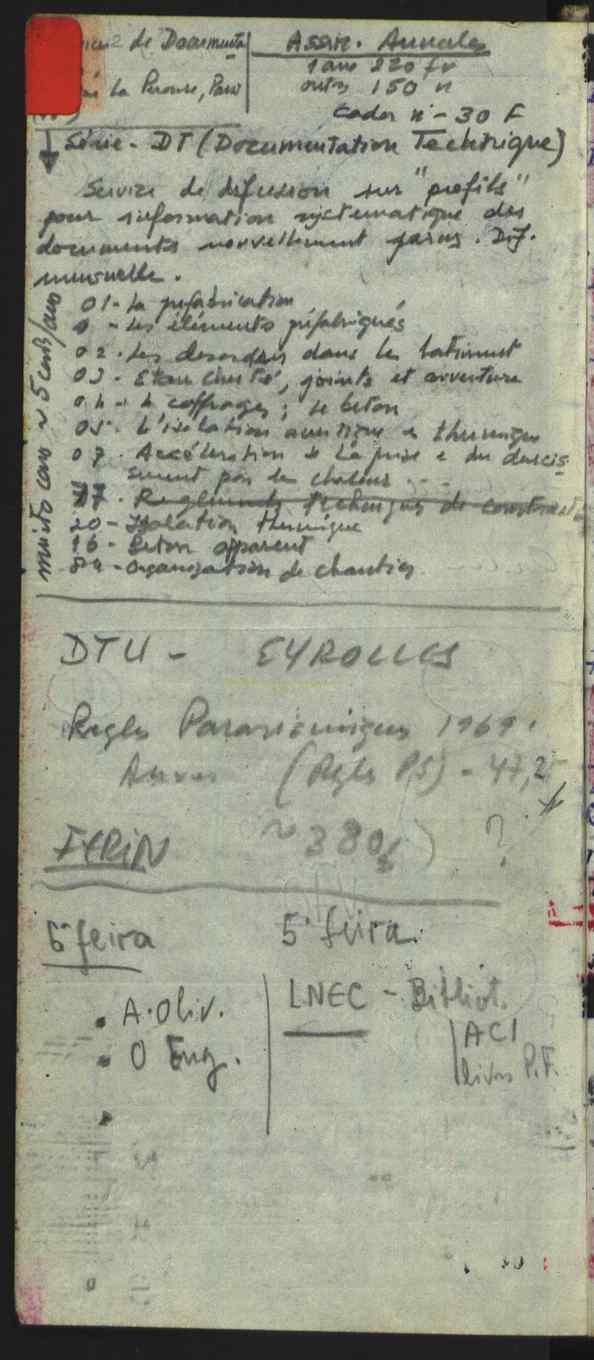 de Documenta
La Perouse, Paris
Assin. Annales
1 ano 220 fr
outros 150 "
cada nº - 30 F
Série - DT (Documentation Technique)
Service de difusion sur "profils"
pour information systematique des
documents nouvellement parus. Dif.
mensuelle.
muito caro ~ 5 conts/ano
01 - La prefabrication
- Les éléments préfabriqués
02 - Les desordres dans le batiment
03 - Etancheité, joints et ouverture
04 - coffrages; le beton
05 - L'isolation acustique e thermique
07 - Accéleration de la prise e du durcis-
sement par la chaleur
17 - Reglements techniques de construct
20 - Isolation thermique
16 - Beton apparent
84 - Organization de chantier
DTU - EYROLLES
Regles Parasismiques 1969.
Annexes (Regles PS) - 47,2
FERIN ~ 380$ ) ?
6ª feira
• A. Oliv.
• O Eng.
5ª feira
LNEC - Bibliot.
ACI
livros P.F.